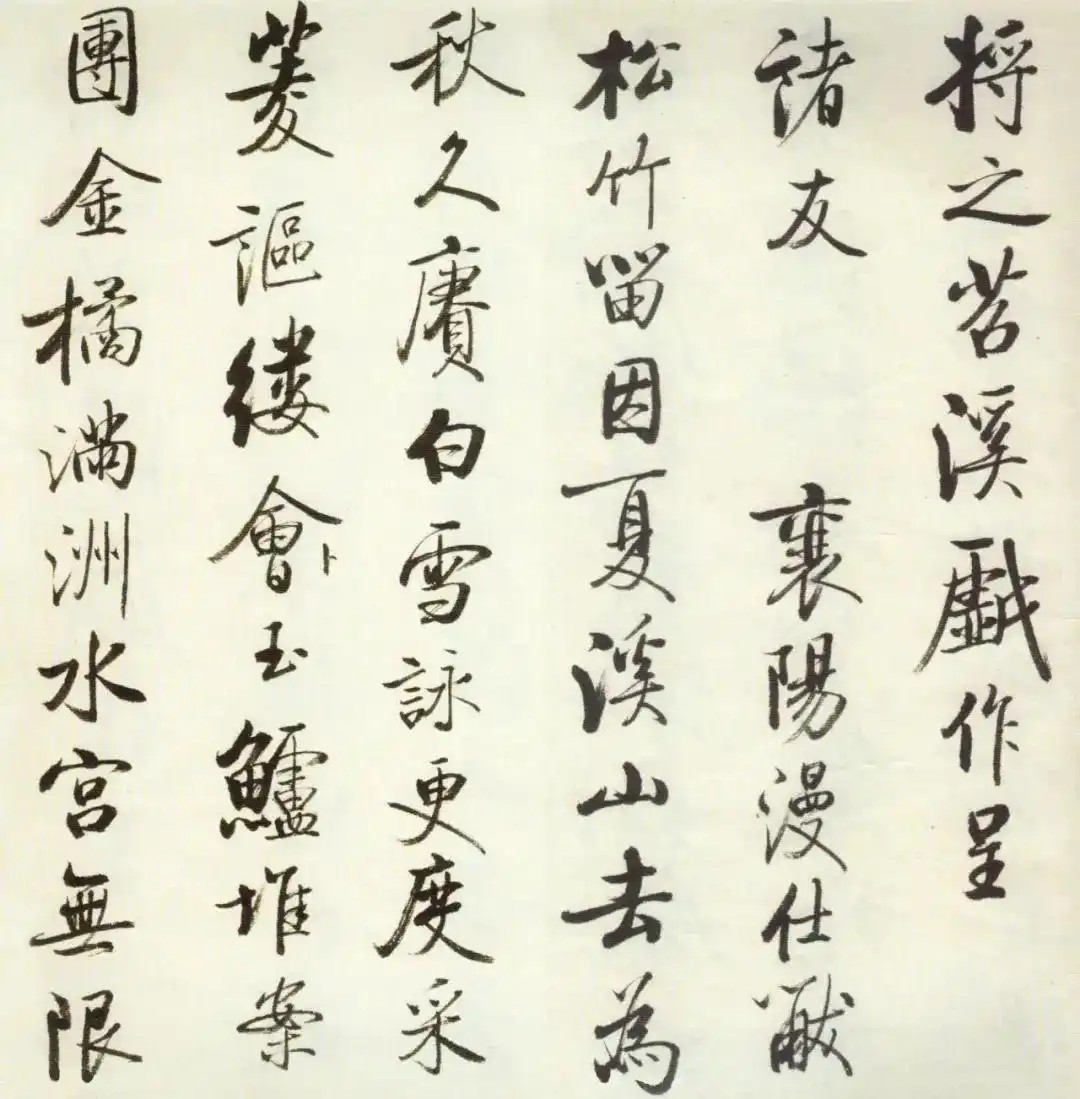 将之苕溪戲作呈
諸友 襄陽漫仕黻
松竹留因夏溪山去為
秋久賡白雪詠更度采
菱謳縷會卜玉鱸堆案
團金橘滿洲水宮無限